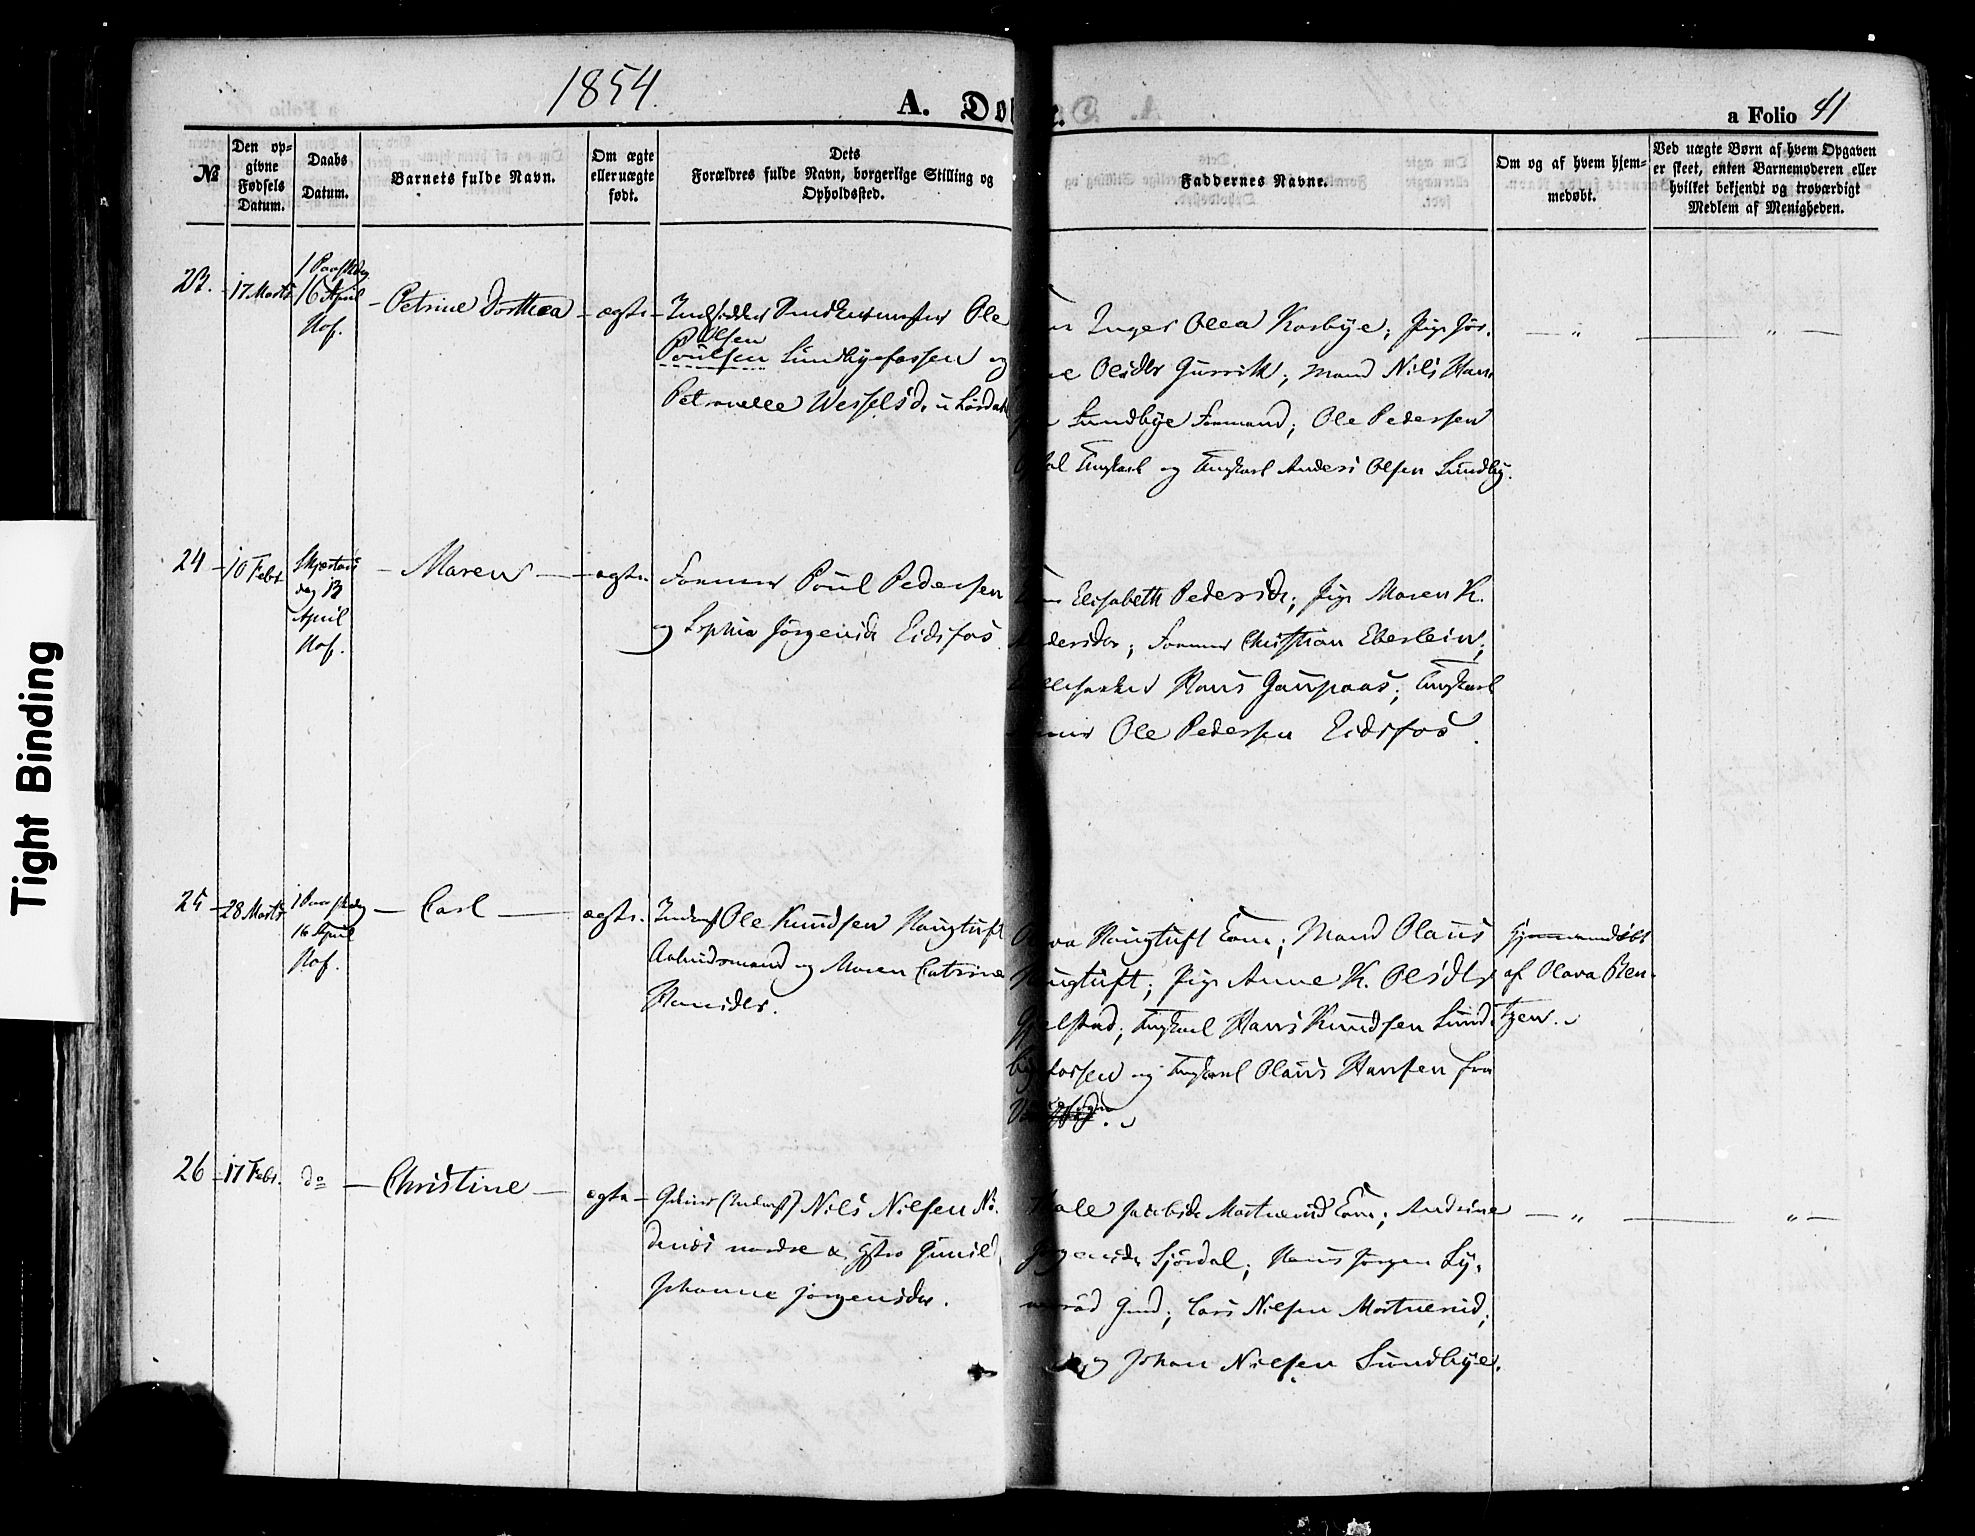 Tight Binding
1854.
A. Døbte.
a Folio 41
№
Den opgivne Fødsels Datum.
Daabs Datum.
Barnets fulde Navn.
Om ægte eller uægte født.
Dets Forældres fulde Navn, borgerlige Stilling og Opholdssted.
Faddernes Navne.
Om og af hvem hjemmedøbt.
Ved uægte Børn af hvem Opgaven er skeet, enten Barnemoderen eller hvilket bekjendt og troværdigt Medlem af Menigheden.
23. 17 Marts
1 Paaskedag
16 April
Hof.
Petrine Dorthea
ægte
Ole
Olsen
Poulsen Sundbyefossen og
Petronelle Wesselsd.
Inger Olea Korbye; Pige Jør-
Olsdtr ; Mand Nils Han
Sundbye Formand; Ole Pedersen
Ungkarl og Ungkarl Anders Olsen Sundby.
24 10 Febr
Skjertors
dag 13
April
Hof.
Maren
ægte
Former Poul Pedersen
og Sophia Jørgensdr Eidsfos.
Elisabeth Pedersdr; Pige Maren K.
Pedersdtr; Former Christian Eberlein;
Hans Gaupaas; Ungkarl
Ole Pedersen Eidsfos.
25 28 Marts
1 Paaskedag
16 April
Hof.
Carl
ægte.
Inderst Ole Knudsen Haugtuft
Arbeidsmand og Maren Catrine
Hansdtr.
Olava Haugtuft Kone; Mand Olaus
Haugtuft; Pige Anne K. Olsdtr
Gjelstad; Ungkarl Hans Knudsen Sund-
byefossen og Ungkarl Olaus Hansen fra
Hjemmedøbt
af Olava Ben-
tzen.
26 17 Febr.
do
Christine
ægte
(Inderst) Nils Nilsen
nordre & Hstro Gunild
Johanne Jørgensdtr.
Jacobsdr Mortnerud Kone; Andrine
Jørgensdr Sjørdal; Hans Jørgen Ly-
Gmd; Lars Nilsen Mortnerud;
og Johan Nilsen Sundbye.